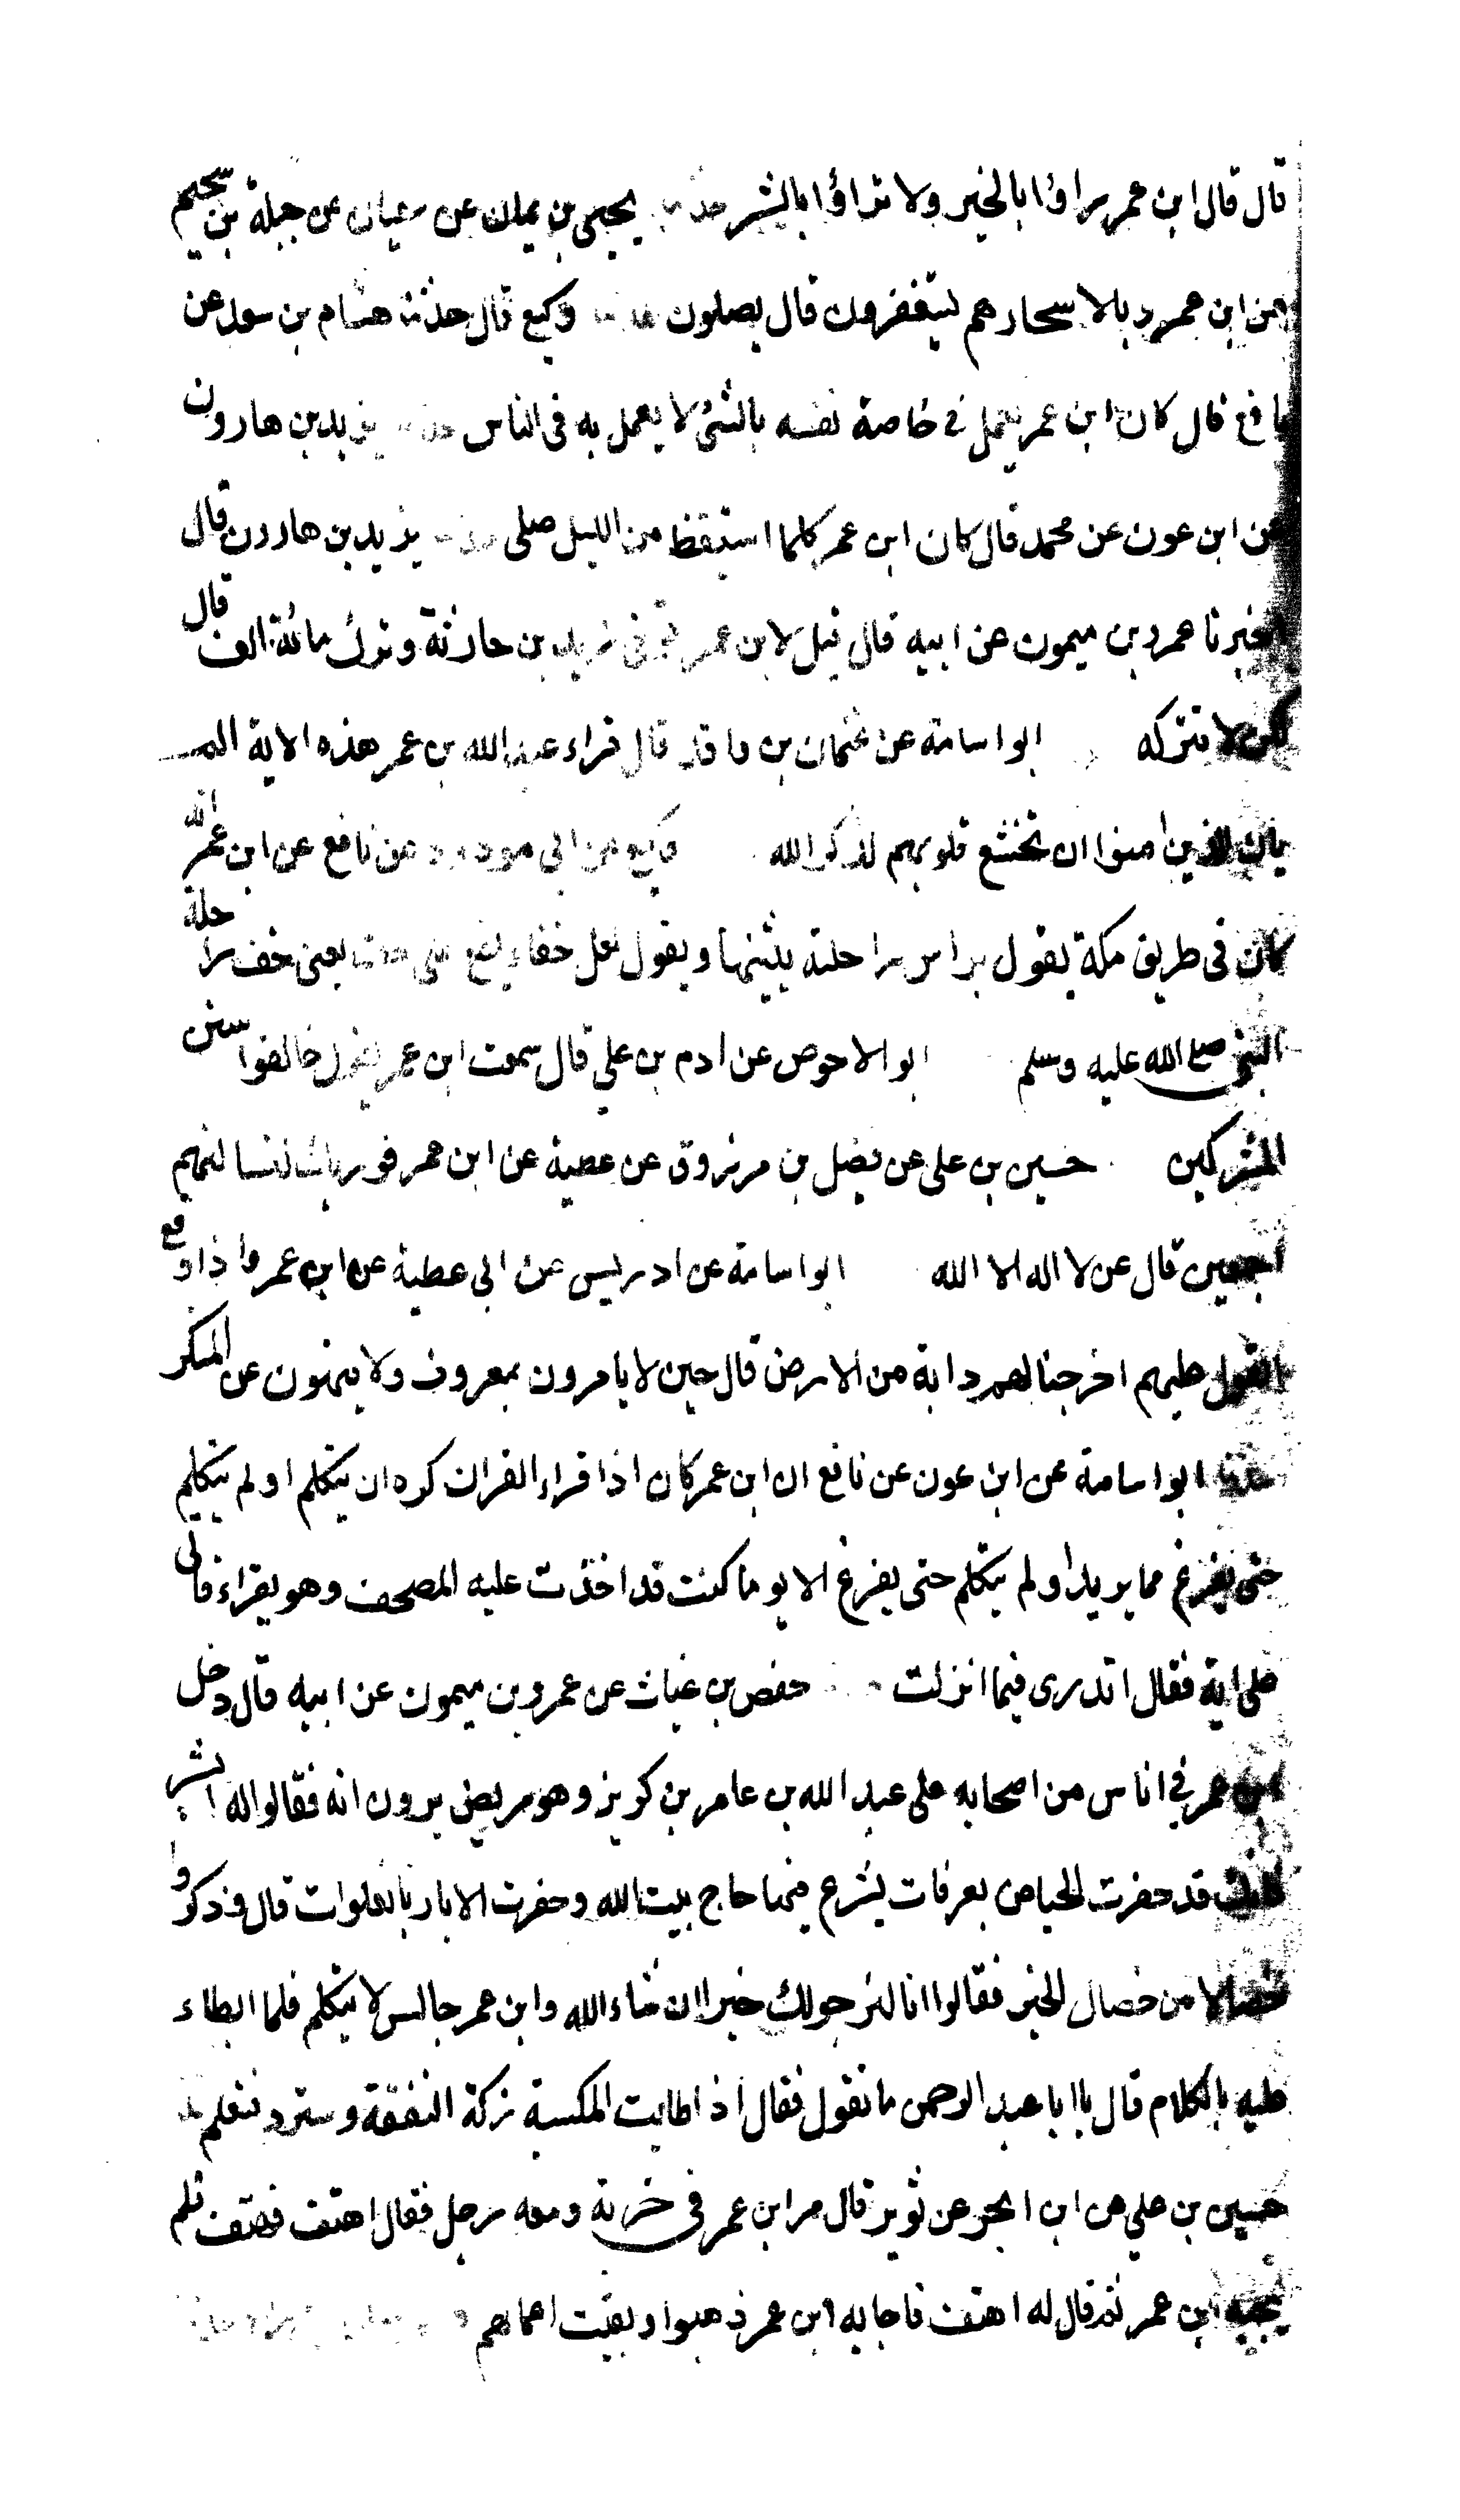 قال قال ابن عمر راؤا بالخير ولا تراؤا بالشر حدثنا يحيى بن يمان عن سفيان عن جبلة بن سحيم
عن ابن عمر وبالاسحار هم يستغفرون قال يصلون حدثنا وكيع قال حدثنا هشام بن سعد عن
نافع قال كان ابن عمر يعمل في خاصة نفسه بالشئ لا يعمل به في الناس حدثنا يزيد بن هارون
عن ابن عون عن محمد قال كان ابن عمر كلما استيقظ من الليل صلى حدثنا يزيد بن هارون قال
اخبرنا عمرو بن ميمون عن ابيه قال قيل لابن عمر توفي زيد بن حارثة وترك مائة الف قال
لكن لا تتركه ابو اسامة عن عثمان بن واقد قال قراء عبد الله بن عمر هذه الاية الم
يان للذين امنوا ان تخشع قلوبهم لذكر الله وكيع عن ابي مودود عن نافع عن ابن عمر انه
كان في طريق مكة يقول براس راحلته يثنيها ويقول لعل خفا يقع على خف يعني خف راحلة
النبي صلى الله عليه وسلم ابو الاحوص عن ادم بن علي قال سمعت ابن عمر يقول خالفوا سنن
المشركين حسين بن على عن فضل بن مرزوق عن عطية عن ابن عمر فوربك لنسالنهم
اجمعين قال عن لا اله الا الله ابو اسامة عن ادريس عن ابى عطية عن ابن عمر واذا وقع
القول عليهم اخرجنا لهم دابة من الارض قال حين لا يامرون بمعروف ولا ينهون عن المنكر
حدثنا ابو اسامة عن ابن عون عن نافع ان ابن عمر كان اذا قراء القران كره ان يتكلم او لم يتكلم
حتى يفرغ مما يريد او لم يتكلم حتى يفرغ الا يوما كنت قد اخذت عليه المصحف وهو يقراء فاتى
على اية فقال اتدرى فيما انزلت حفص بن غياث عن عمرو بن ميمون عن ابيه قال دخل
ابن عمر في اناس من اصحابه على عبد الله بن عامر بن كريز وهو مريض يرون انه فقالوا له ابشر
فانك قد حفرت الحياض بعرفات يشرع فيها حاج بيت الله وحفرت الابار بالفلوات قال وذكروا
خصالا من خصال الخير فقالوا انا لنرجو لك خيرا ان شاء الله وابن عمر جالس لا يتكلم فلما ابطاء
عليه بالكلام قال يا ابا عبد الرحمن ما تقول فقال اذا طابت المكسبة زكت النفقة وسترد فتعلم
حسين بن علي عن ابن ابجر عن ثوير قال مر ابن عمر في خربة ومعه رجل فقال اهتف فهتف فلم
يجبه ابن عمر ثم قال له اهتف فاجابه ابن عمر ذهبوا وبقيت اعمالهم